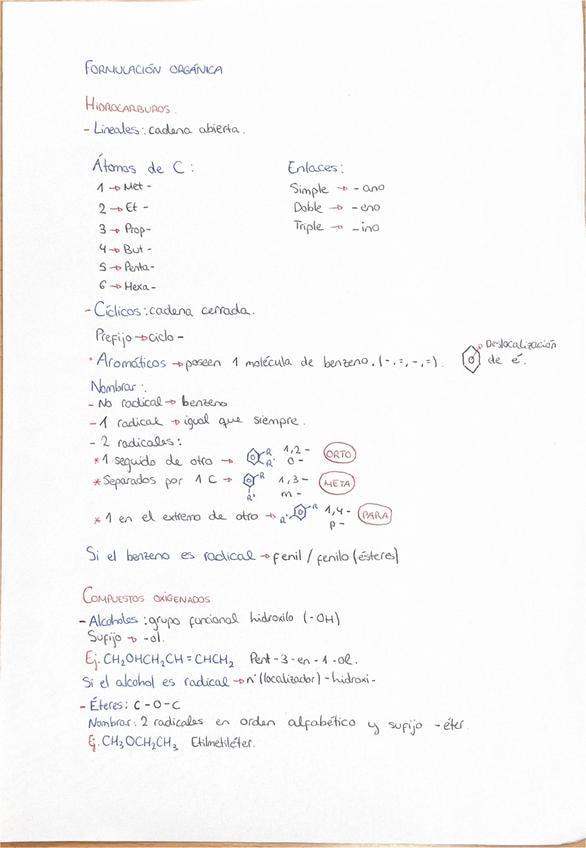 FORMULACIÓN ORGÁNICA
HIDROCARBUROS.
- Lineales: cadena abierta.
Átomos de C:
1 → Met -
2 → Et -
3 → Prop-
4 → But -
5 → Penta-
6 → Hexa-
Enlaces:
Simple → - ano
Doble → - eno
Triple → - ino
- Cíclicos: cadena cerrada.
Prefijo → ciclo -
· Aromáticos → poseen 1 molécula de benzeno. (-,=,-,=).
Deslocalización
de é.
Nombrar:
- No radical → benzeno
- 1 radical → igual que siempre.
- 2 radicales:
* 1 seguido de otro → R R' 1,2 - ORTO
o -
* Separados por 1 C → R R' 1,3 - META
m -
* 1 en el extremo de otro → R' R 1,4 - PARA
p -
Si el benzeno es radical → fenil / fenilo (ésteres)
COMPUESTOS OXIGENADOS
- Alcoholes: grupo funcional hidroxilo (-OH)
Sufijo → -ol.
Ej. CH₂OHCH₂CH=CHCH₂ Pent-3-en-1-ol.
Si el alcohol es radical → nº(localizador) - hidroxi -
- Éteres: C-O-C
Nombrar: 2 radicales en orden alfabético y sufijo -éter.
Ej. CH₃OCH₂CH₃ Etilmetiléter.